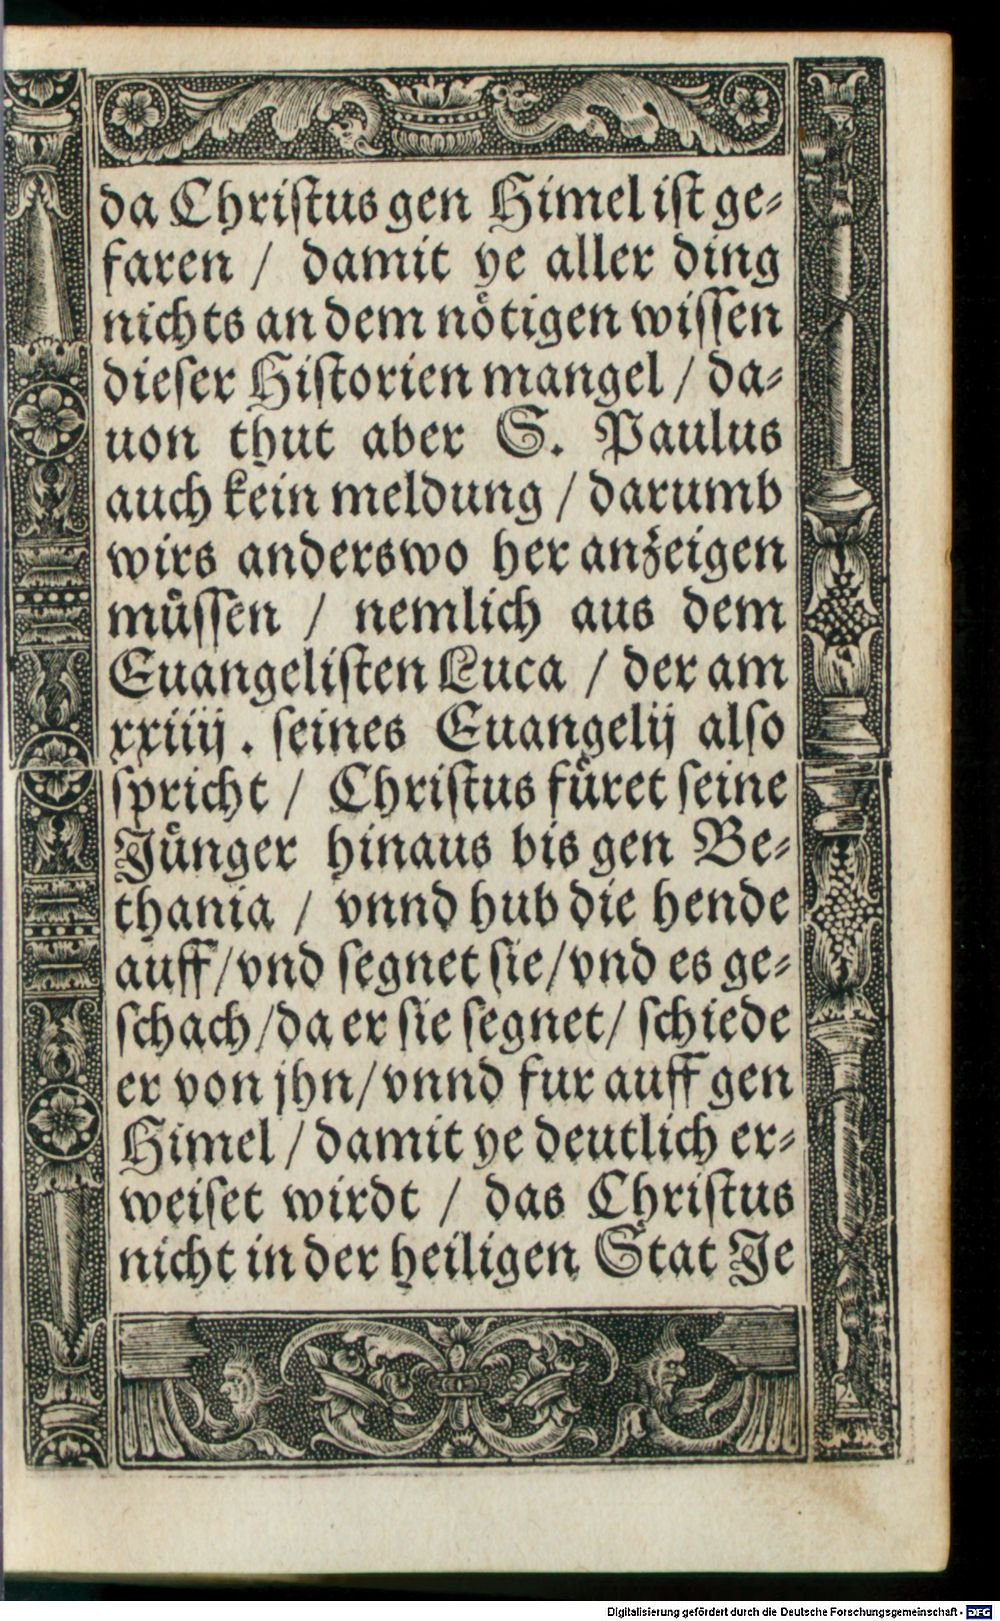 da Christus gen Himel ist ge⸗
faren / damit ye aller ding
nichts an dem nötigen wissen
dieser Historien mangel / da⸗
uon thut aber S. Paulus
auch kein meldung / darumb
wirs anderswo her anzeigen
müssen / nemlich aus dem
Euangelisten Luca / der am
xxiiij . seines Euangelij also
spricht / Christus füret seine
Jünger hinaus bis gen Be⸗
thania / vnnd hub die hende
auff/vnd segnet sie/vnd es ge⸗
schach/da er sie segnet/ schiede
er von jhn/vnnd fur auff gen
Himel /damit ye deutlich er⸗
weiset wirdt / das Christus
nicht in der heiligen Stat Je
Digitalisierung gefördert durch die Deutsche Forschungsgemeinschaft - DFG